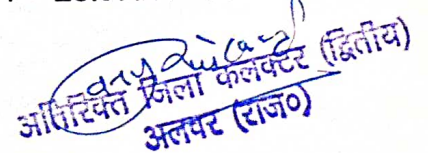 अतिरिक्त जिला कलेक्टर (द्वितीय)
अलवर (राज०)